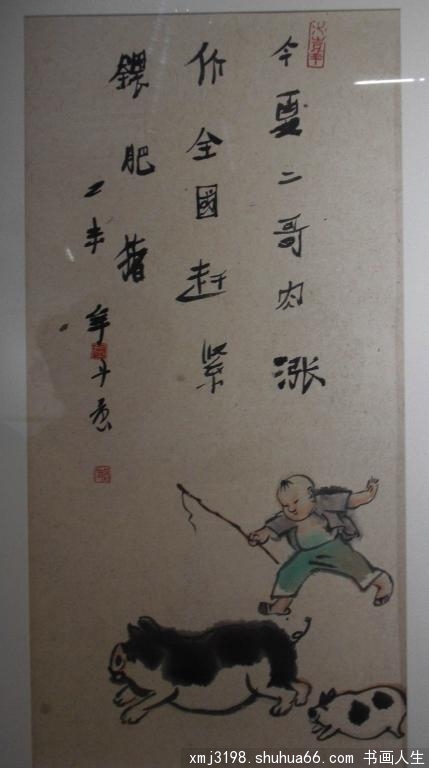 今夏二哥肉涨
价全國赶緊
餵肥猪
xmj3198.shuhua66.com 书画人生